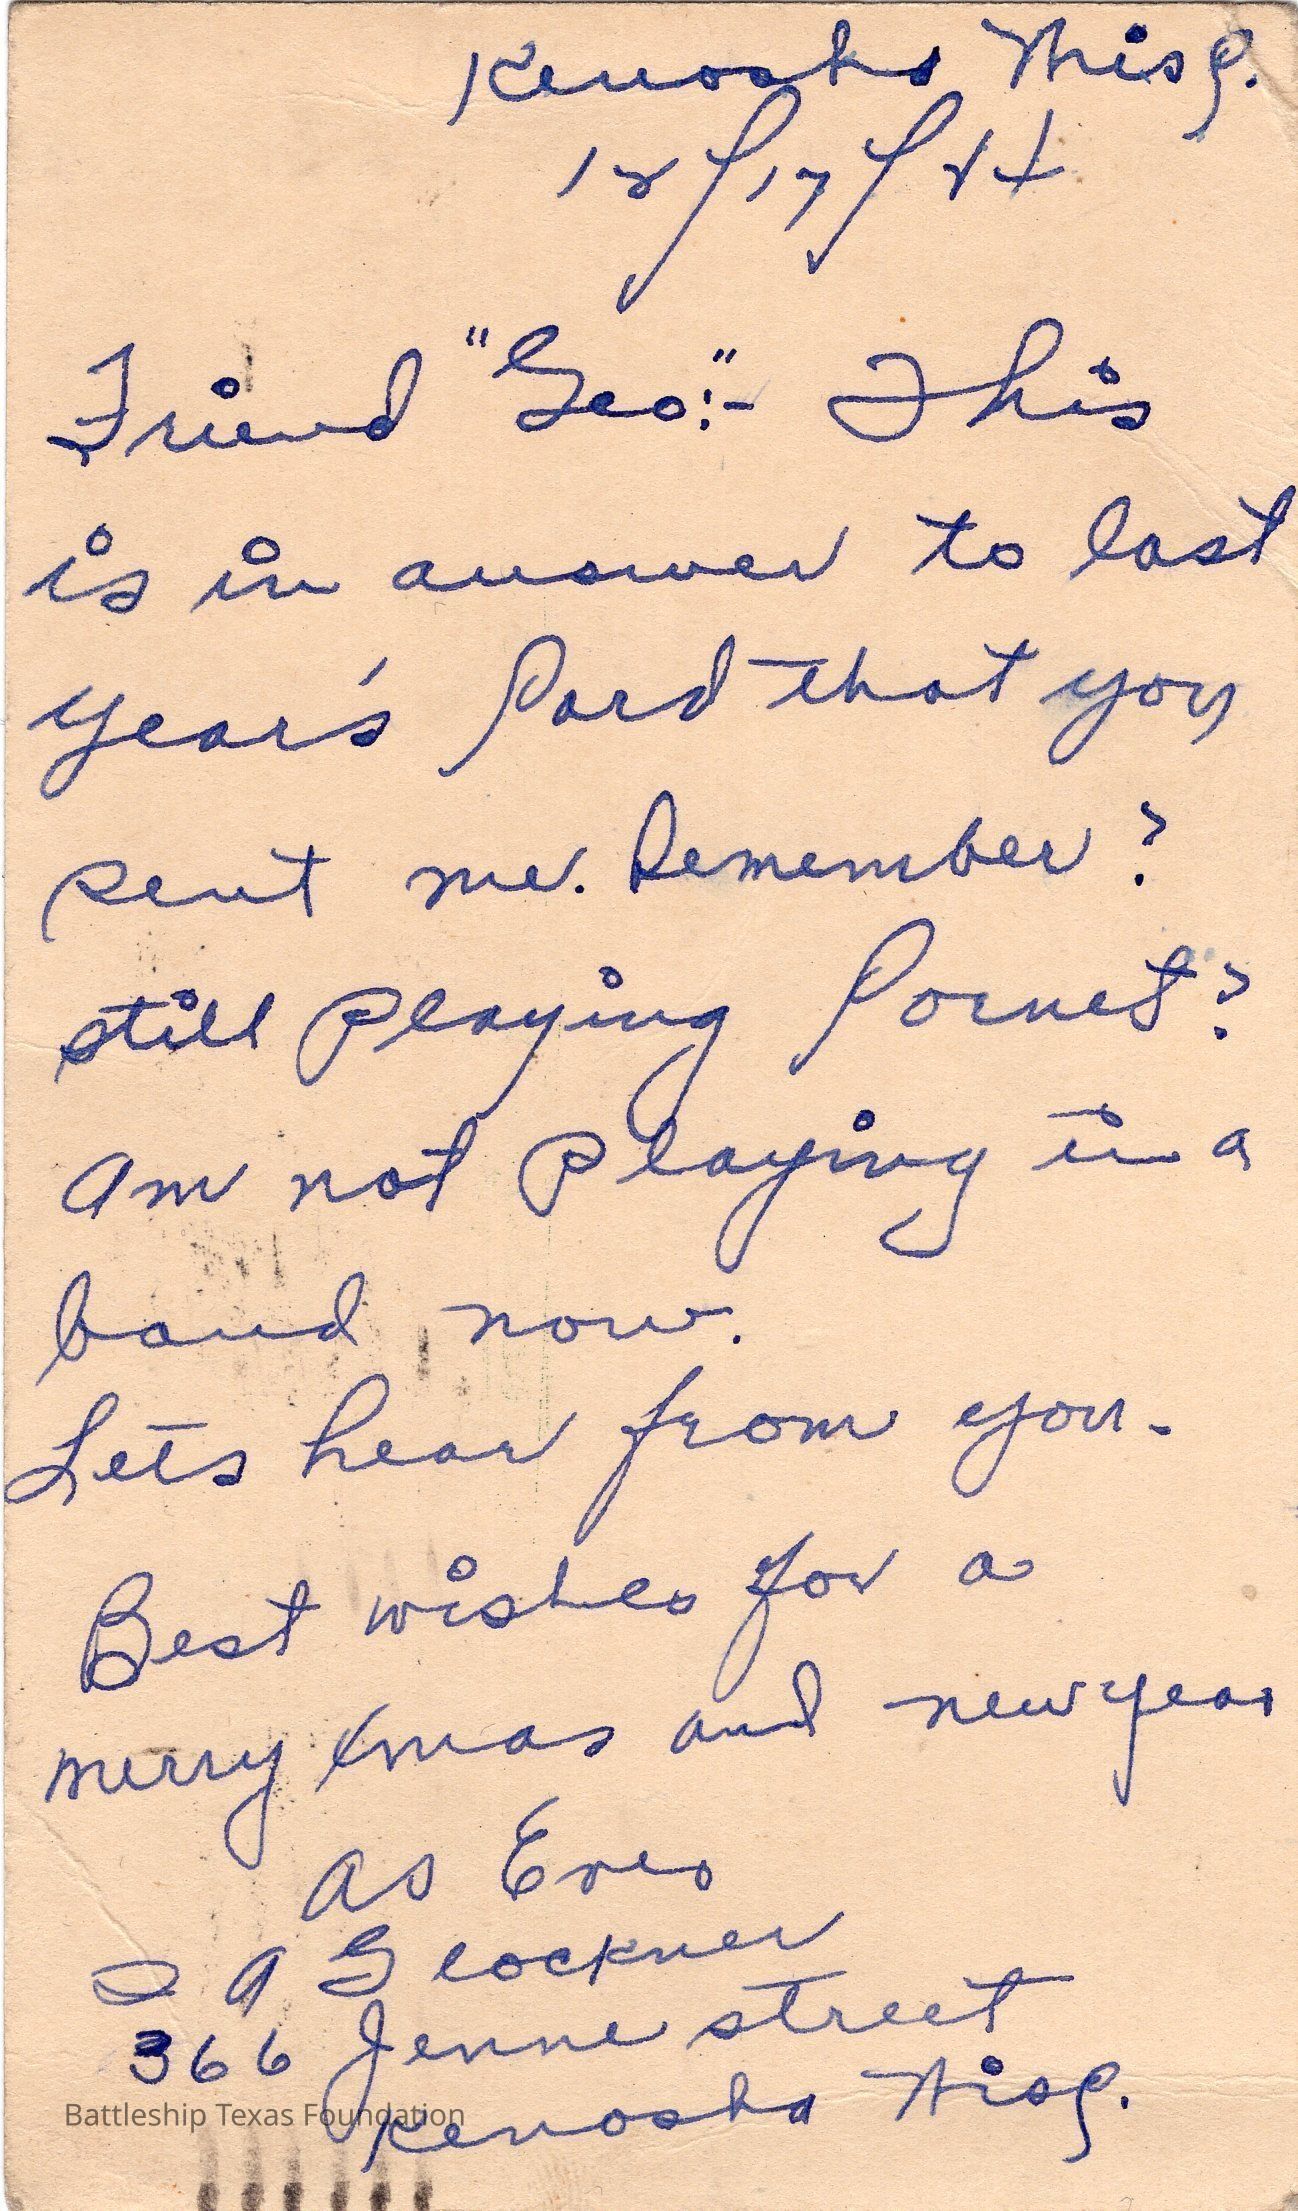 Kenosha Wisc.
12/17/24
Friend "Geo:"- This
is in answer to last
year's Card that you
sent me. Remember?
still Playing Cornet?
Am not Playing in a
band now.
Lets hear from you.
Best wishes for a
merry Xmas and new year
As Ever
A Glockner
366 Jenne street
Kenosha Wisc.
Battleship Texas Foundation